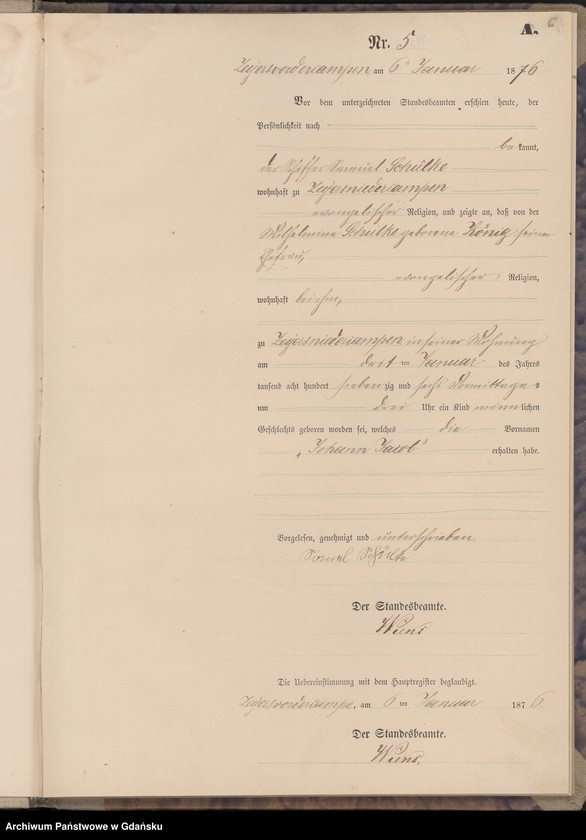 A.
Nr. 5
Zeyersvordercampen am 6ten Januar 1876
Vor dem unterzeichneten Standesbeamten erschien heute, der
Persönlichkeit nach
bekannt,
der Schiffer Samuel Schülke
wohnhaft zu Zeyersniedercampen
evangelischer Religion, und zeigte an, daß von der
Wilhelmine Schulke geborene König seiner
Ehefrau,
evangelischer Religion,
wohnhaft bei ihm,
zu Zeyersniedercampen in seiner Wohnung
am drit ten Januar des Jahres
tausend acht hundert siebenzig und sechs Vormittags
um drei Uhr ein Kind männlichen
Geschlechts geboren worden sei, welches die Vornamen
„Johann Jacob“ erhalten habe.
Vorgelesen, genehmigt und unterschrieben
Der Standesbeamte.
Wiens
Die Uebereinstimmung mit dem Hauptregister beglaubigt.
Zeyersvordercampe, am 6ten Januar 1876.
Der Standesbeamte.
Wiens,
Archiwum Państwowe w Gdańsku